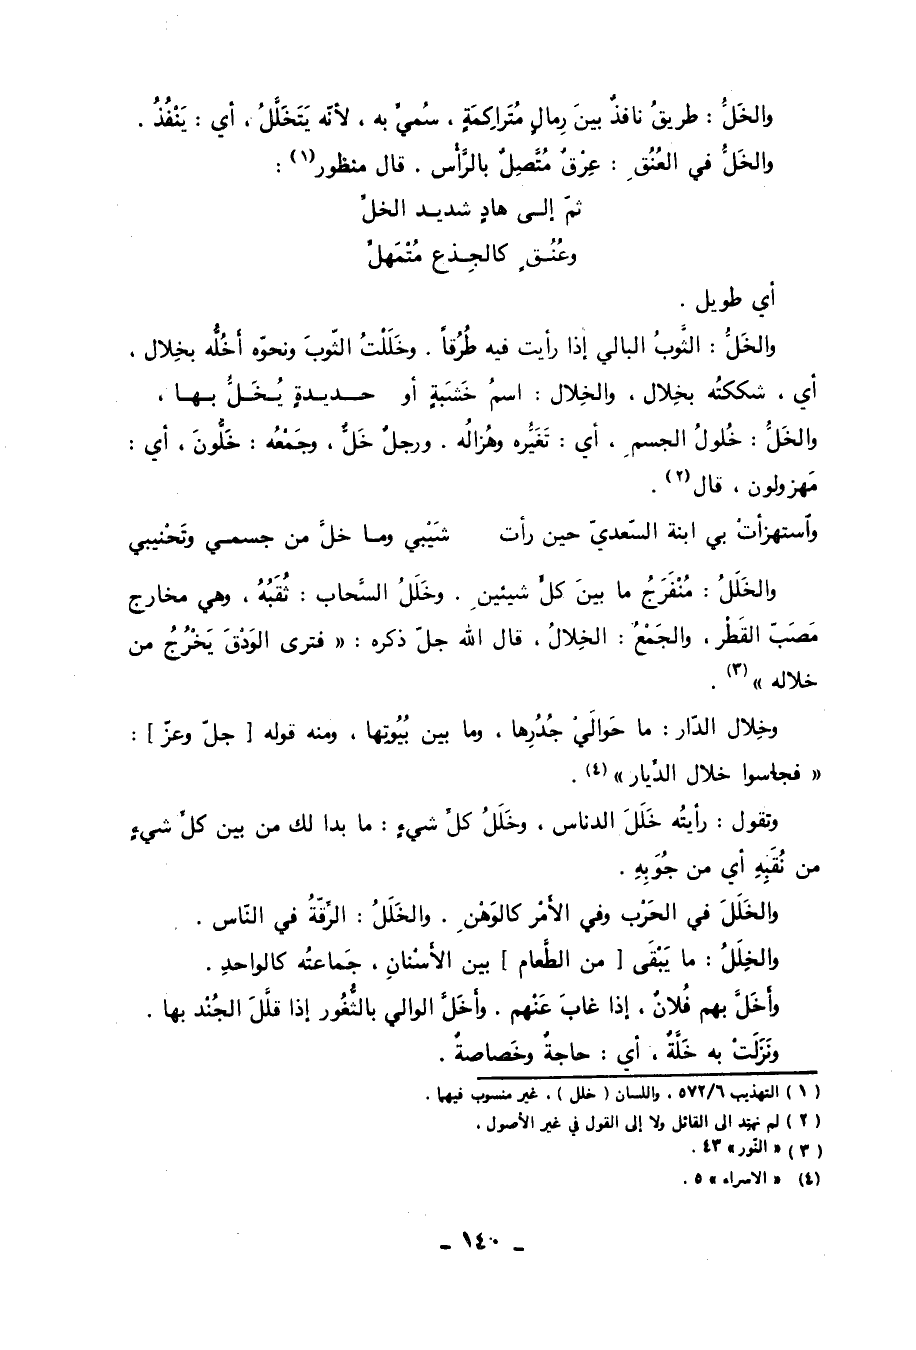 والخَلُّ : طريقُ نافذٌ بينَ رِمالٍ مُتَراكِمَةٍ ، سُميِّ به ، لأنّه يَتَخَلَّلُ ، أي : يَنْفُذُ .
والخَلُّ في العُنُقِ : عِرْقٌ مُتَّصِلٌ بالرَّأْس . قال منظور(١) :
ثمّ إلـى هادٍ شديـد الخلِّ
وعُنُـقٍ كالجِـذع مُتْمَهلِّ
أي طويل .
والخَلُّ : الثَّوبُ البالي إذا رأيت فيه طُرُقاً . وخَلَلْتُ الثّوبَ ونحوّه أخُلُّه بخِلال ،
أي ، شككتُه بخِلال ، والخِلال : اسمُ خَشَبَةٍ أو حـديـدةٍ يُـخَـلُّ بـهـا ،
والخَلُّ : خُلولُ الجسمِ ، أي : تَغَيُّره وهُزالُه . ورجلٌ خَلٌّ ، وجَمْعُه : خَلُّونَ ، أي :
مَهزولون ، قال(٢) .
وآستهزأتْ بي ابنة السّعديّ حين رأت شَيْبي ومـا خلَّ من جسمـي وتَحْنيبي
والخَلَلُ : مُنْفَرَجُ ما بينَ كلِّ شيئينِ . وخَلَلُ السَّحاب : ثُقَبُهُ ، وهي مخارج
مَصَبّ القَطْر ، والجَمْعُ : الخِلالُ ، قال الله جلّ ذكره : « فترى الوَدْقَ يَخْرُجُ من
خلاله »(٣) .
وخِلال الدّار : ما حَوالَيْ جُدُرِها ، وما بين بُيُوتِها ، ومنه قوله [ جلّ وعزّ ] :
« فجاسوا خلال الدِّيار »(٤) .
وتقول : رأيتُه خَلَلَ الدناس ، وخَلَلُ كلِّ شيءٍ : ما بدا لك من بين كلِّ شيءٍ
من نُقَبِهِ أي من جُوَبِهِ .
والخَلَلَ في الحَرْب وفي الأمْر كالوَهْنِ . والخَلَلُ : الرِّقّةُ في النّاس .
والخِلَلُ : ما يَبْقَى [ من الطَّعام ] بين الأسْنانِ ، جَماعتُه كالواحدِ .
وأَخَلَّ بهم فُلانٌ ، إذا غابَ عَنْهم . وأخَلَّ الوالي بالثُّغُور إذا قلَّلَ الجُنْد بها .
ونَزَلَتْ به خَلَّةٌ ، أي : حاجةٌ وخَصاصةٌ .
( ١ ) التهذيب ٥٧٢/٦ ، واللسان ( خلل ) ، غير منسوب فيهما .
( ٢ ) لم نهتد الى القائل ولا إلى القول في غير الأصول .
( ٣ ) « النّور » ٤٣ .
(٤) « الاسراء » ٥ .
- ١٤٠ -